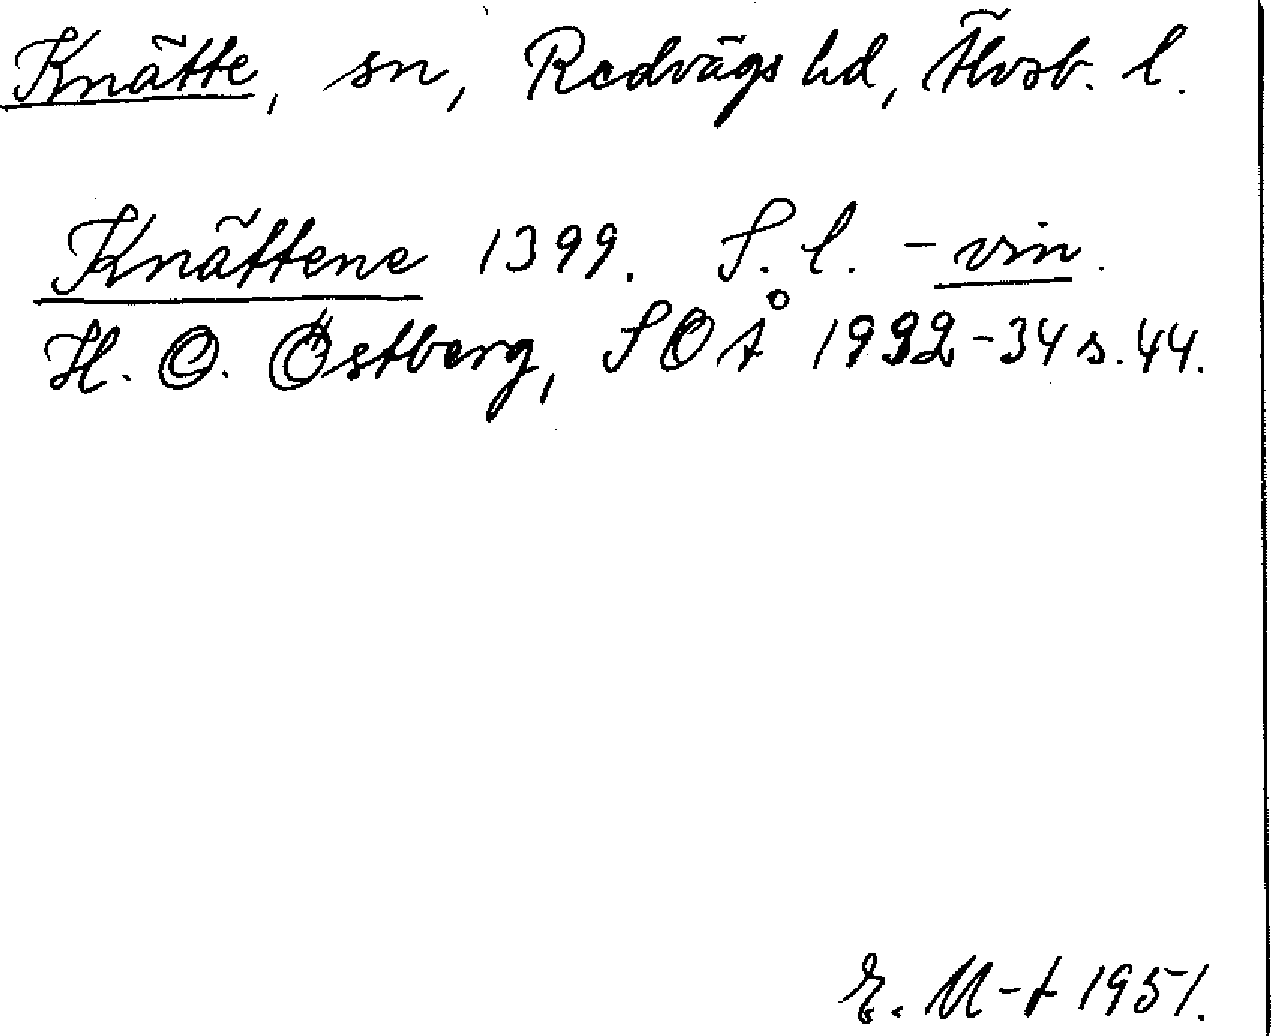 Knätte, sn, Redvägs hd, Älvsb. l.
Knättene 1399. S. l. -vin.
H. O. Östberg, SOÅ 1932-34 s. 44.
E. M-t 1951.